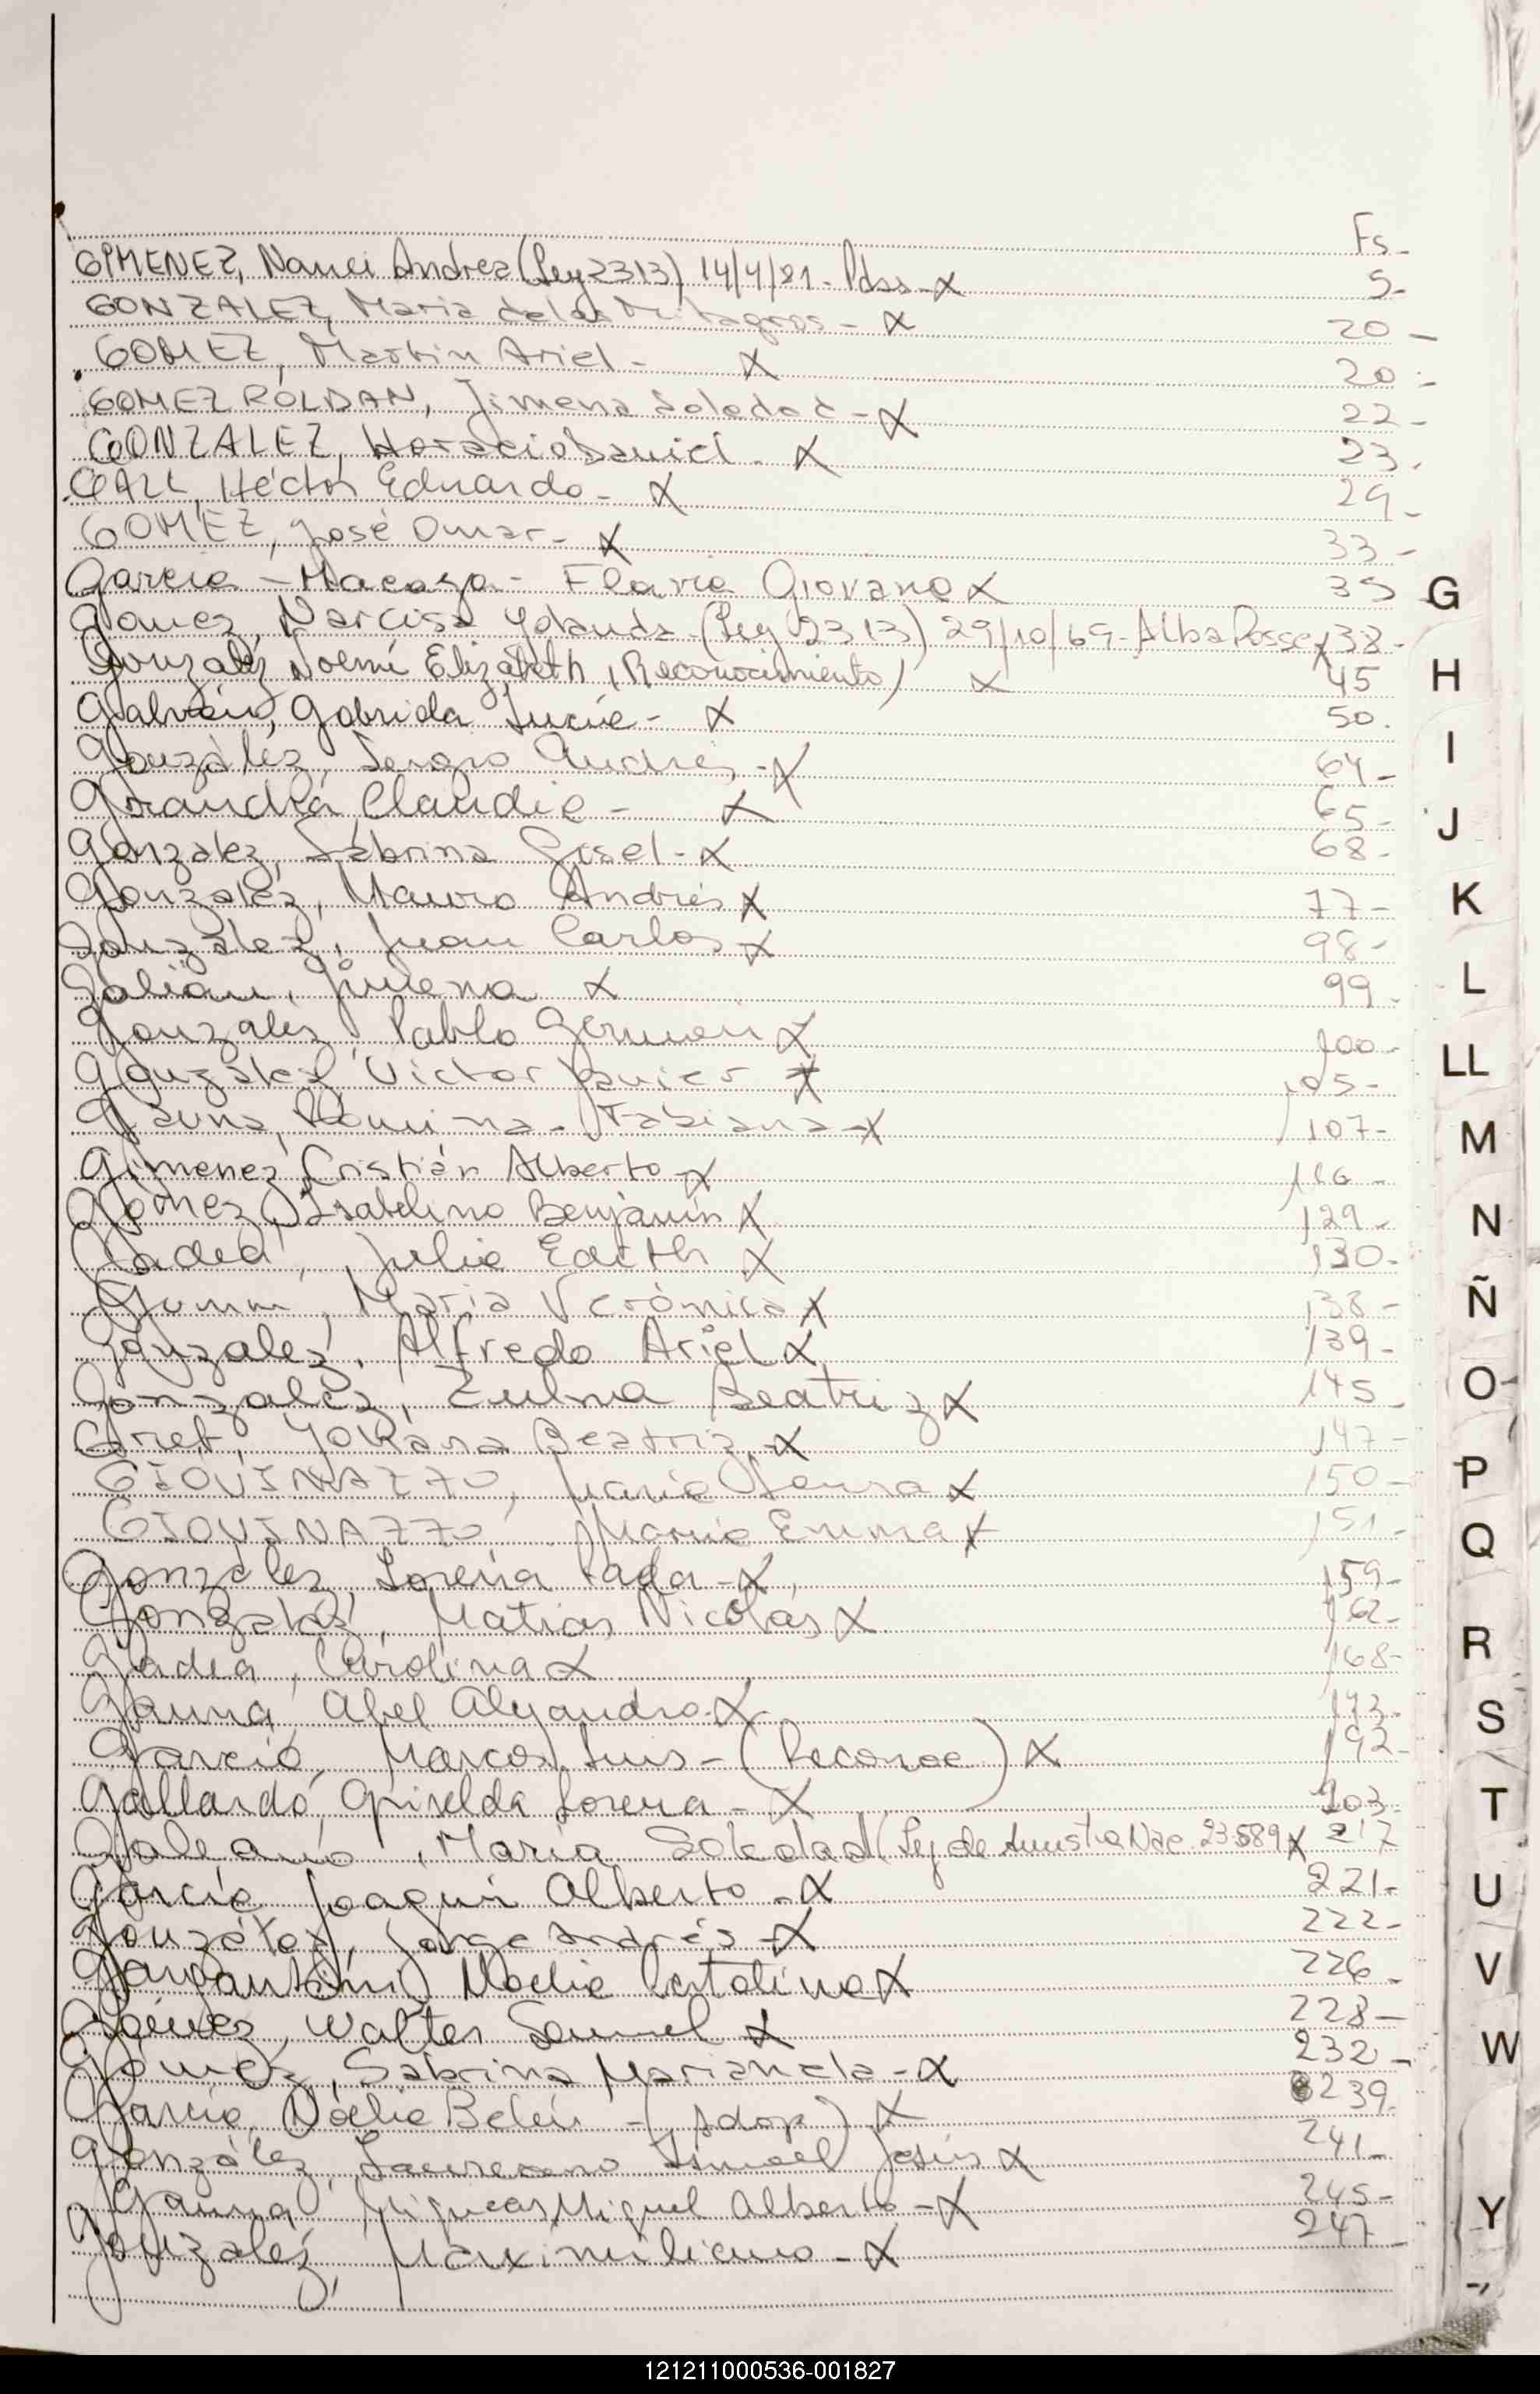 Fs-
GIMENEZ, Nanci Andrea (Ley 2313) 14/4/81. Pdas-x 5-
GONZALEZ, Maria de los Milagros - x 20 -
GOMEZ, Martin Ariel - x 20 -
GOMEZ ROLDAN, Jimena Soledad - x 22 -
GONZALEZ, Horacio Daniel - x 23 .
GALL, Héctor Eduardo - x 29 -
GOMEZ, José Omar - x 33 -
Garcia - Macaya - Flavia Giovana x 35
Gomez, Narcisa Yolanda (Ley 2313) 29/10/69- Alba Posse x 38-
González Noemí Elizabeth (Reconocimiento) x 45
Galván, Gabriela Lucía - x 50.
González, Sergio Andrés - x 64 -
Claudia - x 65 -
González, Sabrina Gisel - x 68 -
González, Mauro Andrés x 77 -
González, Juan Carlos x 98 -
Galián, Jimena x 99 -
González Pablo German x 100 -
González Victor Javier x 105 -
Gauna, Romina - Fabiana - x 107 -
Gimenez Cristián Alberto - x 116 -
Gómez, Isabelino Benjamín x 129 -
Gadea, Julia Edith x 130 -
Gumm, María Verónica x 138 -
González, Alfredo Ariel x 139 -
González, Zulma Beatriz x 145 -
Gret, Yohana Beatriz - x 147 -
GIOVINAZZO, María Laura x 150 -
GIOVINAZZO, María Emma x 151 -
González, Lorena Paola - x 159 -
González, Matias Nicolás x 162 -
Gadea, Carolina x 168 -
Gauna, Abel Alejandro - x 173 -
García, Marcos Luis - (Reconoc) x 192 -
Gallardo, Griselda Lorena - x 203 -
Galeano, María Soledad (Ley de Amnistia Nac. 23.589 x 217
García Joaquin Alberto - x 221 -
González, Jorge Andrés - x 222 -
Nadia Catalina x 226 -
Gómez, Walter Samuel x 228 -
Gómez, Sabrina Marianela - x 232 -
García, Noelia Belén - (Adop) x 239
González, Laureano Ismael Jesús x 241 -
Gauna, Miqueas Miguel Alberto - x 245 -
González, Maximiliano - x 247 -
G
H
I
J
K
L
LL
M
N
Ñ
O
P
Q
R
S
T
U
V
W
Y
121211000536-001827